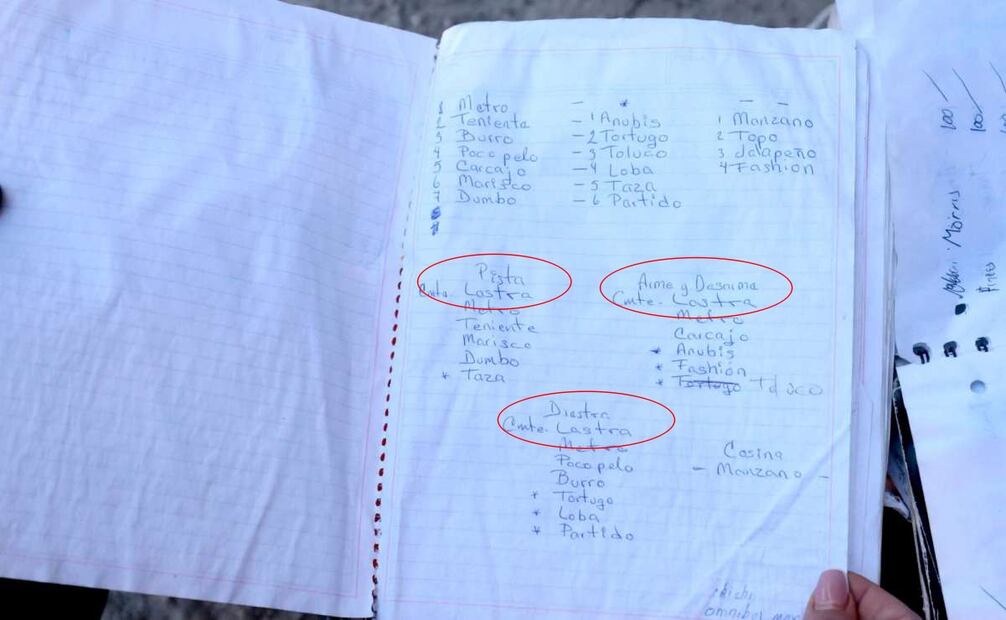 1 Metro
2 Teniente
3 Burro
4 Pocopelo
5 Carcajo
6 Marisco
7 Dumbo
- *
- 1 Anubis
- 2 Tortugo
- 3 Toluco
- 4 Loba
- 5 Taza
- 6 Partido
- -
1 Manzano
2 Topo
3 Jalapeño
4 Fashion
Pista
Cmte. Lastra
Metro
Teniente
Marisco
Dumbo
* Taza
Arme y Desarme
Cmte. Lastra
Metro
Carcajo
* Anubis
* Fashion
* Tortugo Toluco
Diestra
Cmte. Lastra
Metro
Pocopelo
Burro
* Tortugo
* Loba
* Partido
Cosina
- Manzano -
omnibus
100
100
Morris